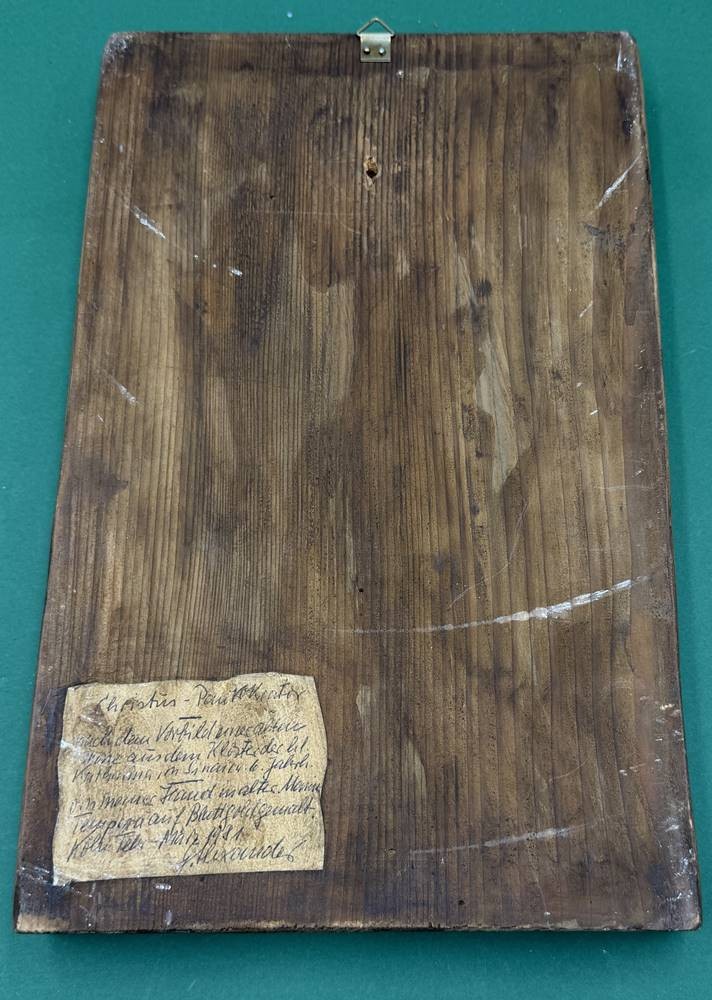 Christus - Pantokrator
nach dem Vorbild einer alten
Ikone aus dem Kloster der hl.
Katharina im Sinai a. 6. Jahrh.
von meiner Hand in alter Manier
Tempera auf Blattgold gemalt.
Köln Febr - März 1981
Alexander